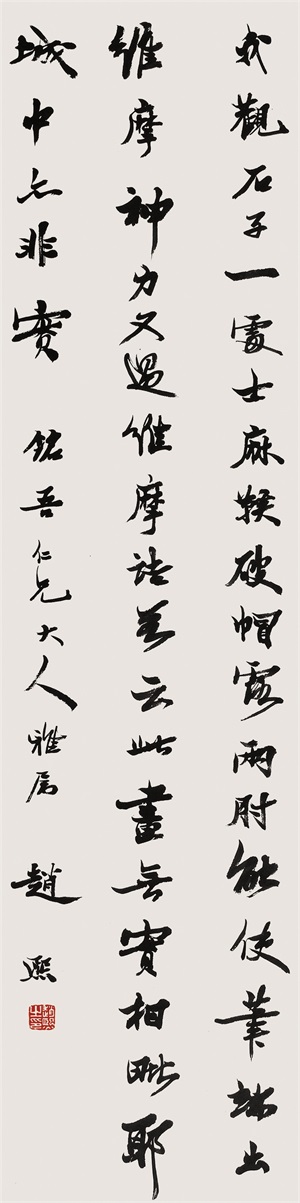 我觀石子一處士麻鞵破帽露兩肘能使筆端出
維摩神力又過維摩詰若云此畫無實相毗耶
城中亦非實 銘吾仁兄大人雅屬 趙熙